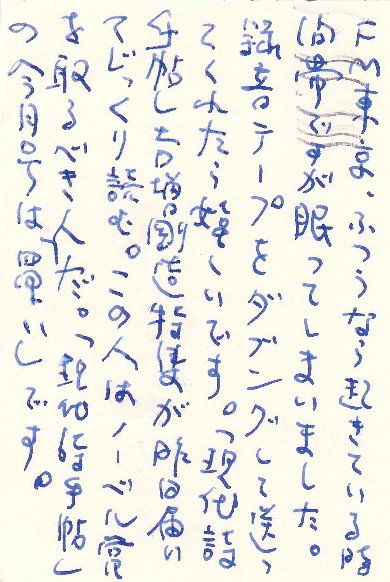 FM東京、ふつうなら起きている時
間帯ですが眠ってしまいました。
録音テープをダブングして送っ
てくれたら嬉しいです。「現代詩
手帖」吉増剛造特集が昨日届い
てじっくり読む。この人はノーベル賞
を取るべき人だ。「現代詩手帖」
の今月号は買いです。